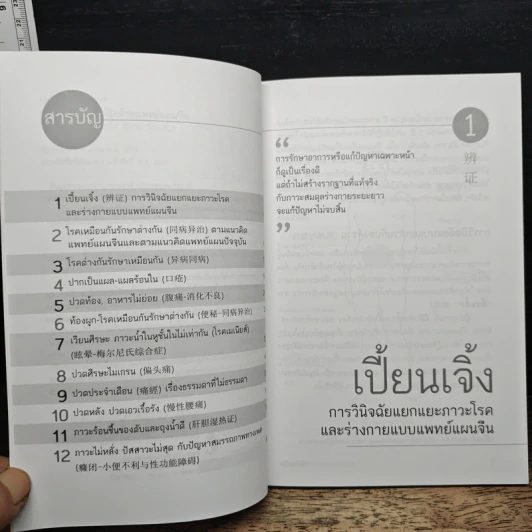 สารบัญ
1 เปี้ยนเจิ้ง (辨证) การวินิจฉัยแยกแยะภาวะโรค
และร่างกายแบบแพทย์แผนจีน
2 โรคเหมือนกันรักษาต่างกัน (同病异治) ตามแนวคิด
แพทย์แผนจีนและตามแนวคิดแพทย์แผนปัจจุบัน
3 โรคต่างกันรักษาเหมือนกัน (异病同病)
4 ปากเป็นแผล-แผลร้อนใน (口疮)
5 ปวดท้อง, อาหารไม่ย่อย (腹痛-消化不良)
6 ท้องผูก-โรคเหมือนกันรักษาต่างกัน (便秘-同病异治)
7 เวียนศีรษะ ภาวะน้ำในหูชั้นในไม่เท่ากัน (โรคเมเนียส์)
(眩晕-梅尔尼氏综合症)
8 ปวดศีรษะไมเกรน (偏头痛)
9 ปวดประจำเดือน (痛經) เรื่องธรรมดาที่ไม่ธรรมดา
10 ปวดหลัง ปวดเอวเรื้อรัง (慢性腰痛)
11 ภาวะร้อนชื้นของตับและถุงน้ำดี (肝胆湿热证)
12 ภาวะไม่หลั่ง ปัสสาวะไม่สุด กับปัญหาสมรรถภาพทางเพศ
(癃闭-小便不利与性功能障碍)
1
辨
证
“
การรักษาอาการหรือแก้ปัญหาเฉพาะหน้า
ก็ดูเป็นเรื่องดี
แต่ถ้าไม่สร้างรากฐานที่แท้จริง
กับภาวะสมดุลร่างกายระยะยาว
จะแก้ปัญหาไม่จบสิ้น
”
เปี้ยนเจิ้ง
การวินิจฉัยแยกแยะภาวะโรค
และร่างกายแบบแพทย์แผนจีน